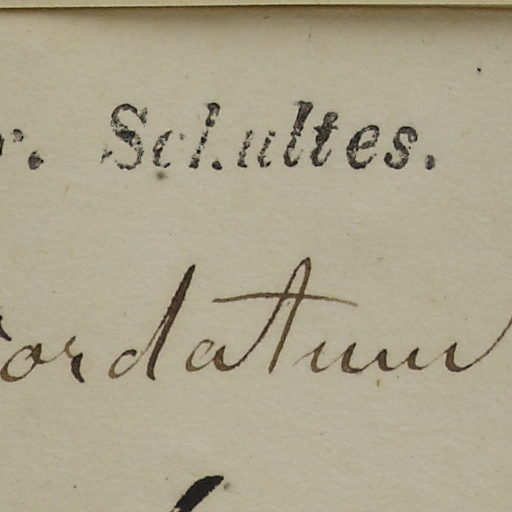 r. Schultes.
cordatum